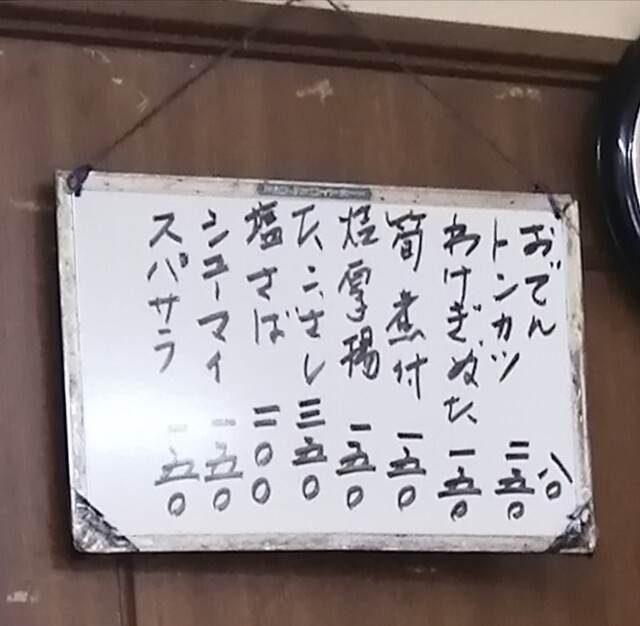 おでん 八〇
トンカツ 二五〇
わけぎぬた 一五〇
筍煮付 一五〇
焼厚揚 一五〇
たこさし 三五〇
塩さば 二〇〇
シューマイ 二五〇
スパサラ 一五〇